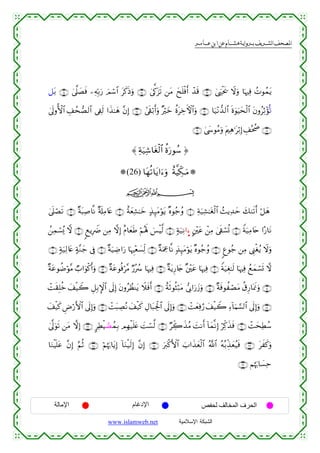 المصحف الشريف برواية هشام عن ابن عامر
يَمُوتُ فِيهَا وَلَا يَحْيَىٰ ۝ قَدْ أَفْلَحَ مَن تَزَكَّىٰ ۝ وَذَكَرَ ٱسْمَ رَبِّهِۦ فَصَلَّىٰ ۝ بَلْ
تُؤْثِرُونَ ٱلْحَيَوٰةَ ٱلدُّنْيَا ۝ وَٱلْأَخِرَةُ خَيْرٌ وَأَبْقَىٰ ۝ إِنَّ هَٰذَا لَفِى ٱلصُّحُفِ ٱلْأُولَىٰ
۝ صُحُفِ إِبْرَٰهِيمَ وَمُوسَىٰ ۝
﴿ سُورَةُ ٱلْغَٰشِيَةِ ﴾
* مَكِّيَّةٌ وَءَايَاتُهَا (26) *
بِسْمِ ٱللَّهِ ٱلرَّحْمَٰنِ ٱلرَّحِيمِ
هَلْ أَتَىٰكَ حَدِيثُ ٱلْغَٰشِيَةِ ۝ وُجُوهٌ يَوْمَئِذٍ خَٰشِعَةٌ ۝ عَامِلَةٌ نَّاصِبَةٌ ۝ تَصْلَىٰ
نَارًا حَامِيَةً ۝ تُسْقَىٰ مِنْ عَيْنٍ ءَانِيَةٍ ۝ لَّيْسَ لَهُمْ طَعَامٌ إِلَّا مِن ضَرِيعٍ ۝ لَّا يُسْمِنُ
وَلَا يُغْنِى مِن جُوعٍ ۝ وُجُوهٌ يَوْمَئِذٍ نَّاعِمَةٌ ۝ لِّسَعْيِهَا رَاضِيَةٌ ۝ فِى جَنَّةٍ عَالِيَةٍ ۝
لَّا تَسْمَعُ فِيهَا لَٰغِيَةً ۝ فِيهَا عَيْنٌ جَارِيَةٌ ۝ فِيهَا سُرُرٌ مَّرْفُوعَةٌ ۝ وَأَكْوَابٌ مَّوْضُوعَةٌ
۝ وَنَمَارِقُ مَصْفُوفَةٌ ۝ وَزَرَابِىُّ مَبْثُوثَةٌ ۝ أَفَلَا يَنظُرُونَ إِلَى ٱلْإِبِلِ كَيْفَ خُلِقَتْ
۝ وَإِلَى ٱلسَّمَآءِ كَيْفَ رُفِعَتْ ۝ وَإِلَى ٱلْجِبَالِ كَيْفَ نُصِبَتْ ۝ وَإِلَى ٱلْأَرْضِ كَيْفَ
سُطِحَتْ ۝ فَذَكِّرْ إِنَّمَآ أَنتَ مُذَكِّرٌ ۝ لَّسْتَ عَلَيْهِم بِمُسَيْطِرٍ ۝ إِلَّا مَن تَوَلَّىٰ
وَكَفَرَ ۝ فَيُعَذِّبُهُ ٱللَّهُ ٱلْعَذَابَ ٱلْأَكْبَرَ ۝ إِنَّ إِلَيْنَآ إِيَابَهُمْ ۝ ثُمَّ إِنَّ عَلَيْنَا
حِسَابَهُم ۝
الحرف المخالف لحفص الإدغام الإمالة
الشبكة الإسلامية www.islamweb.net